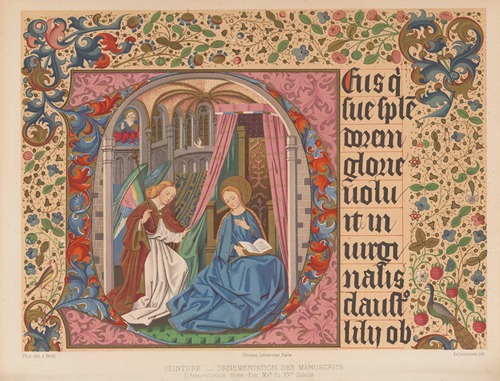 Eius q̃
sue sple
dorem
glorie
ṽolu
it in
uirgi
nalis
claust̃
lilij ob
PEINTURE _ ORNEMENTATION DES MANUSCRITS
L'Annonciation tirée d'un Mst du XVe Siècle